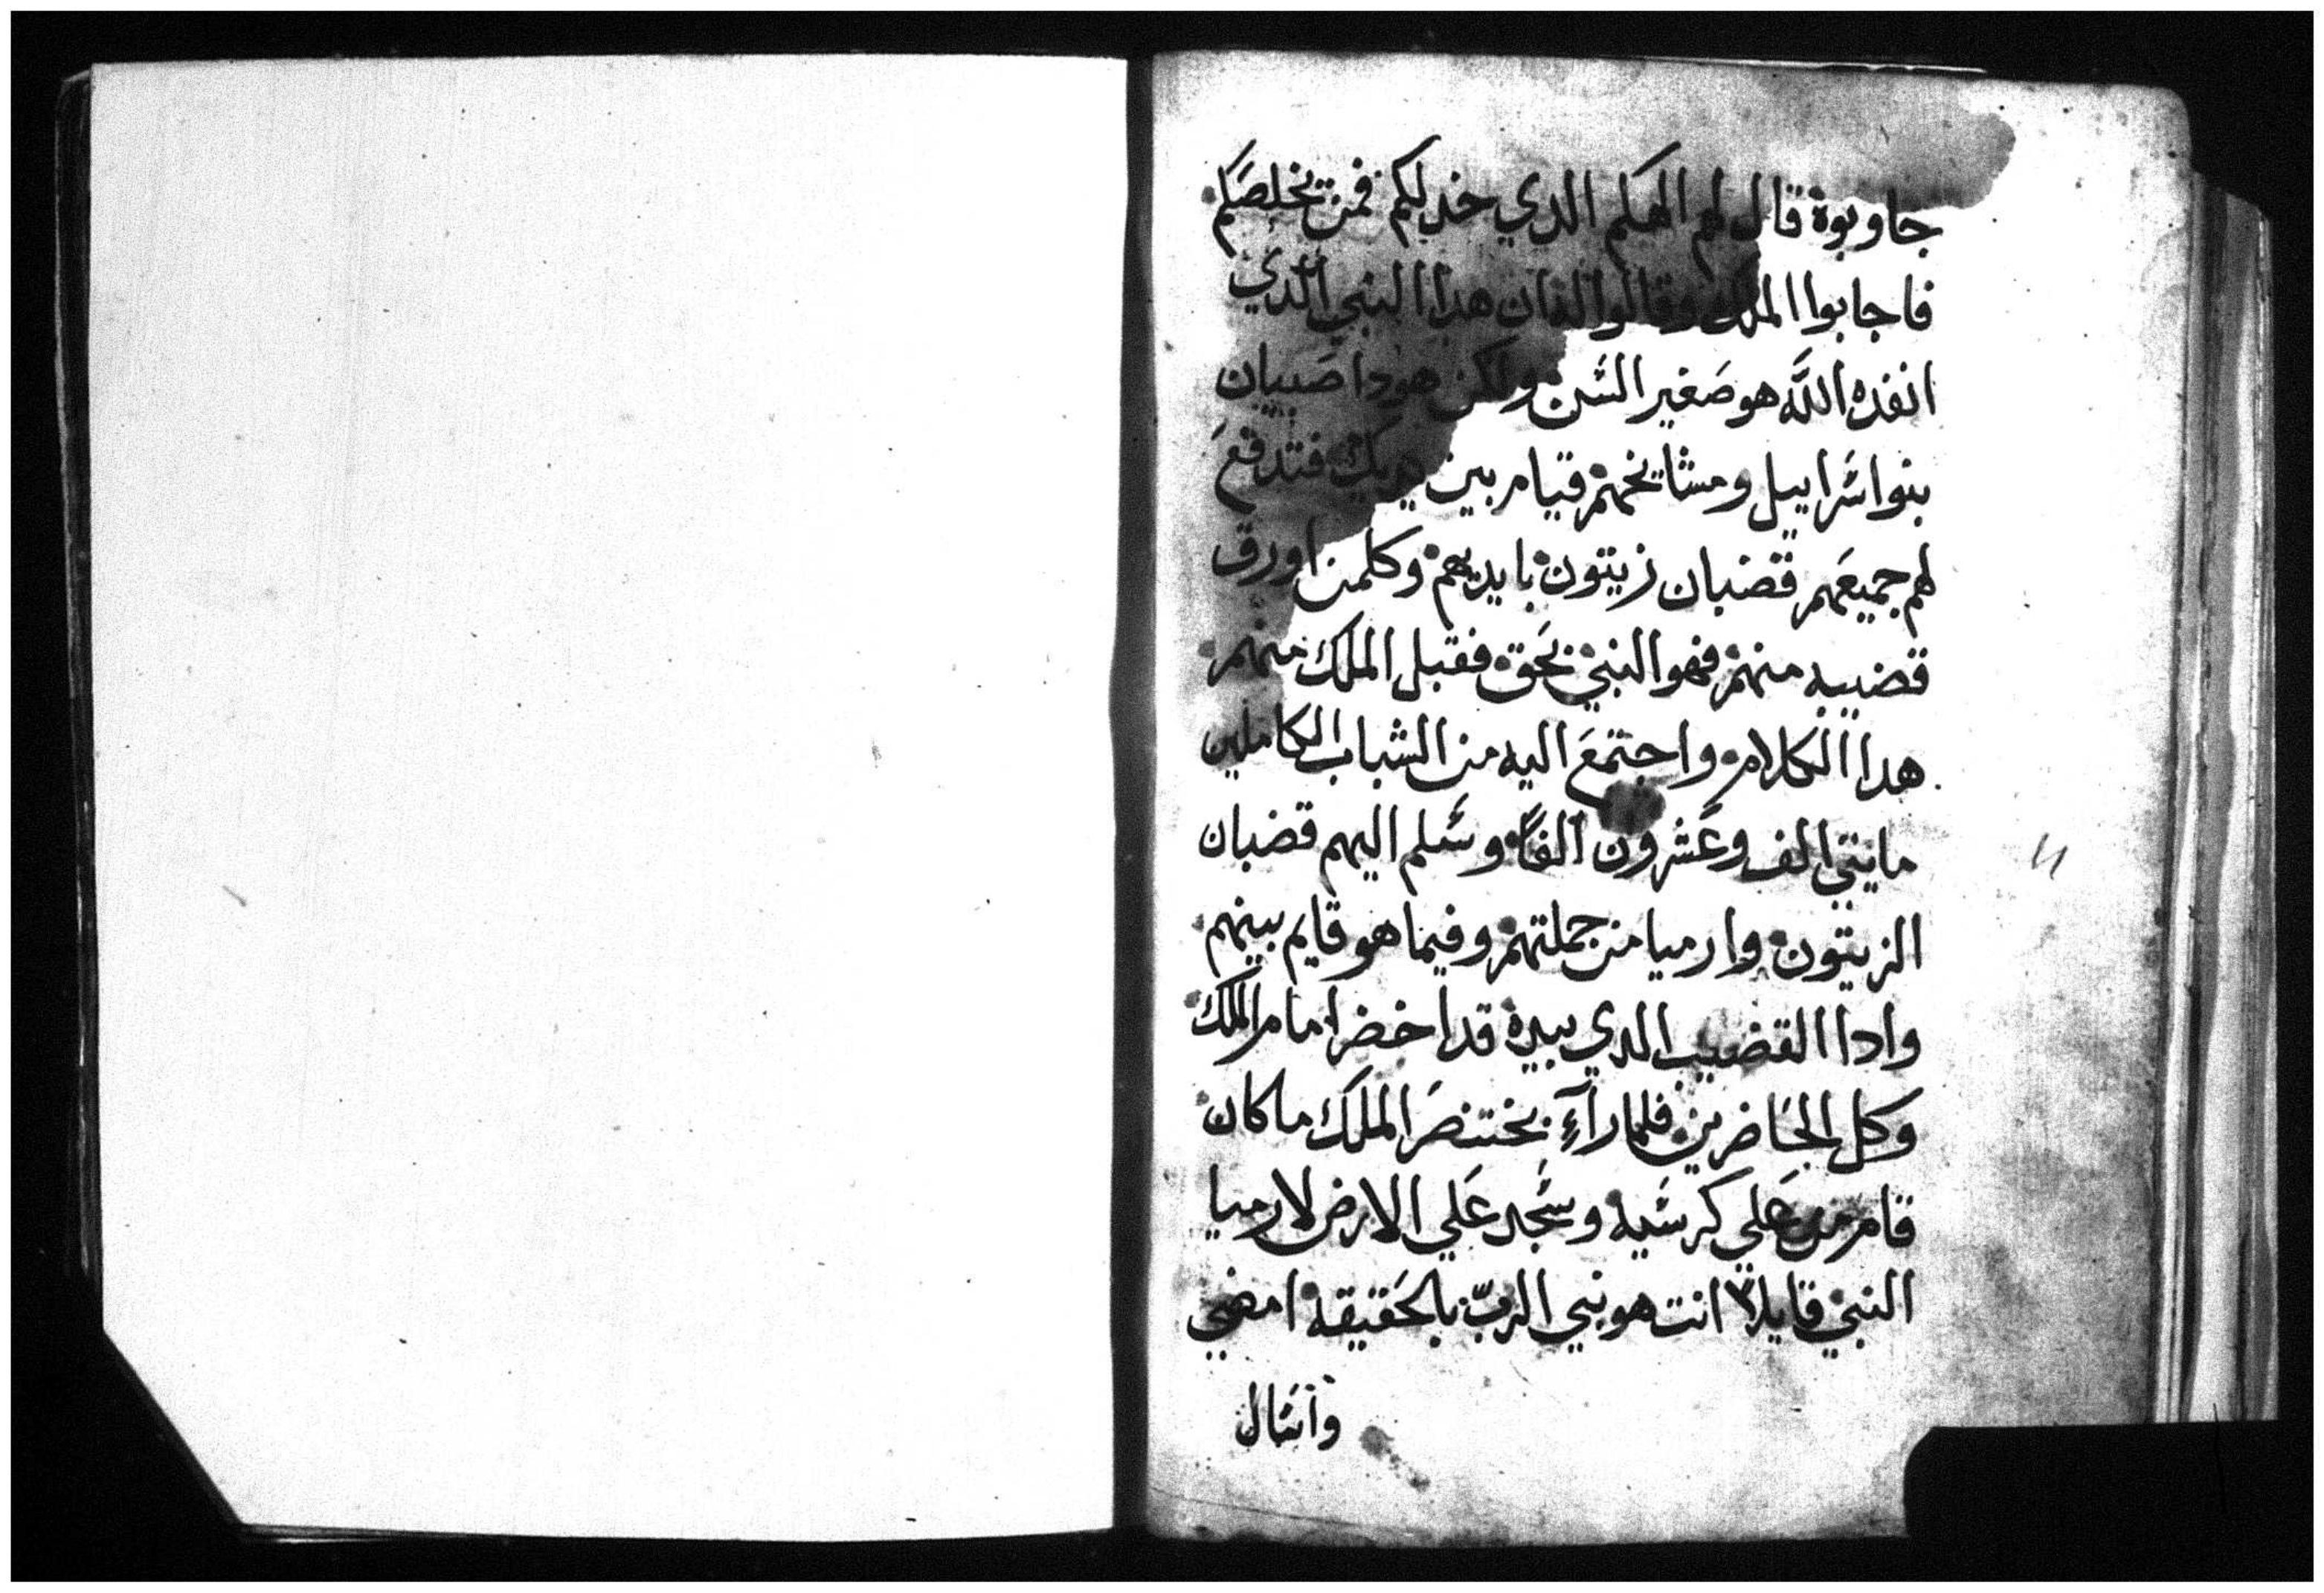 جاوبوة قال لهم الهكم الذي خدلكم فمن يخلصكم
فاجابوا الملك وقالوا له ان هدا النبي الذي
انفذه الله هو صغير السن ولكن هودا صبيان
بنوا سراييل ومشايخهم قيام بين يديك فتدفع
لهم جميعهم قضبان زيتون بايديهم وكلمن اورق
قضيبه منهم فهو النبي بحق فقبل الملك منهم
هدا الكلام واجتمع اليه من الشباب الكاملين
مايتي الف وعشرون الفًا وسلم اليهم قضبان
الزيتون وارميا من جملتهم وفيما هو قايم بينهم
وادا القضيب الدي بيده قد اخضر امام الملك
وكل الحاضرين فلما رآء بختنصر الملك ما كان
قام من علي كرسيه وسجد علي الارض لارميا
النبي قايلا انت هو نبي الربّ بالحقيقه امضي
واسال